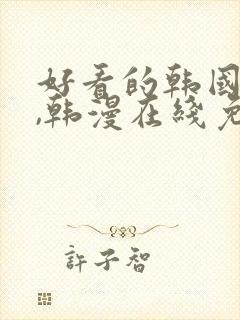 好看的韩国
,韩漫在线免
許子智